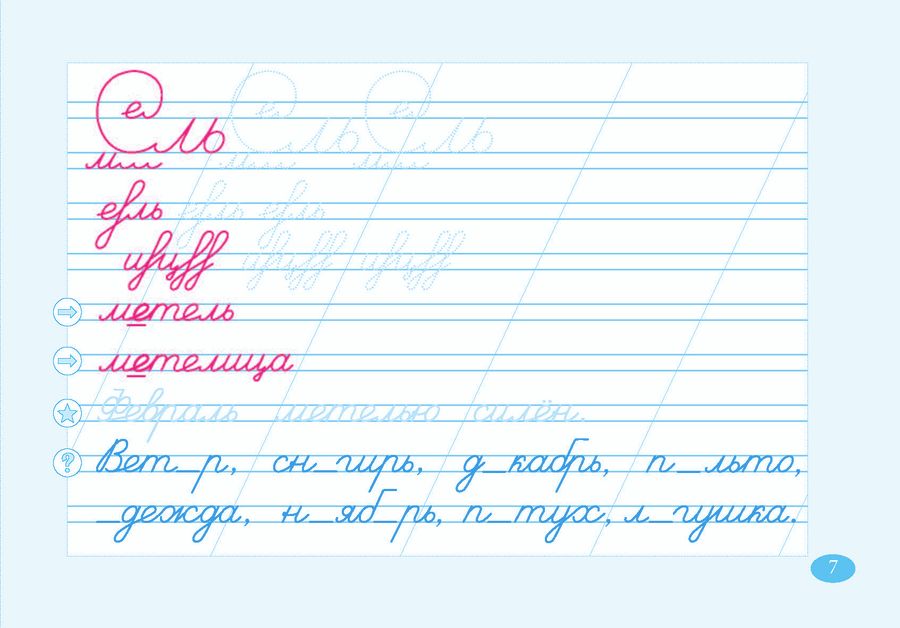 Ель Ель Ель
метель
метелица
Февраль метелью силён.
Вет_р, сн_гирь, д_кабрь, п_льто,
_дежда, н_яб_рь, п_тух, л_гушка.
7